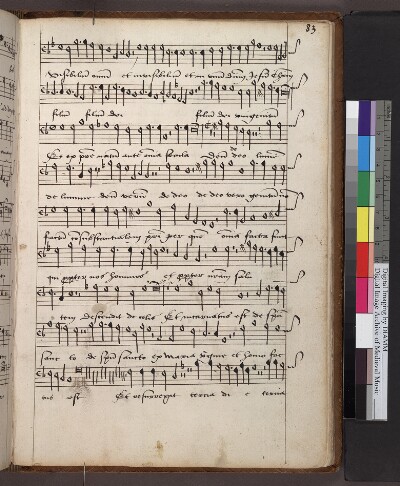 83
visibiliũ omniũ et invisibiliũ et in unũ dnm Jesũ
filiũ filiũ dei filiũ dei unigenitũ
Et ex pre natũ ante oĩa secula deũ de deo lumẽ
de lumine deũ verũ de deo de deo vero genitũ nõ
factũ cõsubstantialem pri per quẽ oĩa facta sunt
qui propter nos homines et propter nrãm salu
tem descendit de celis Et incarnatus est de spũ
sanc to de spũ sancto ex maria virgine et homo fac
tus est Et resurrexit tercia di e tercia
Digital Imaging by DIAMM
Digital Image Archive of Medieval Music